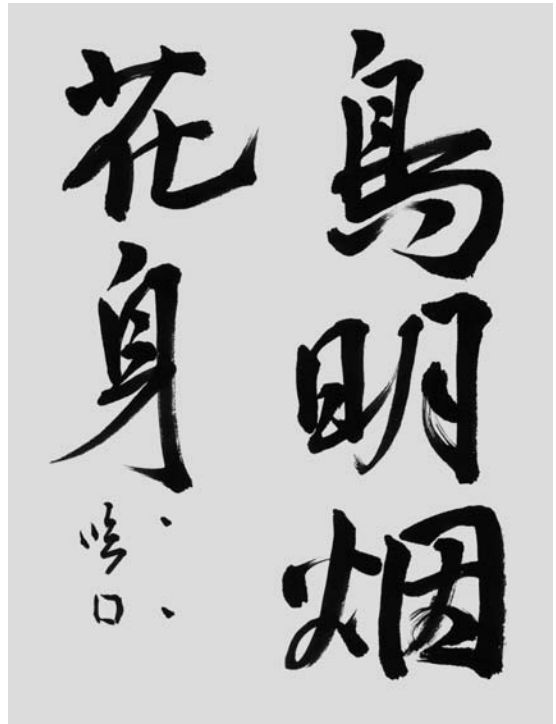 鳥明烟
花身